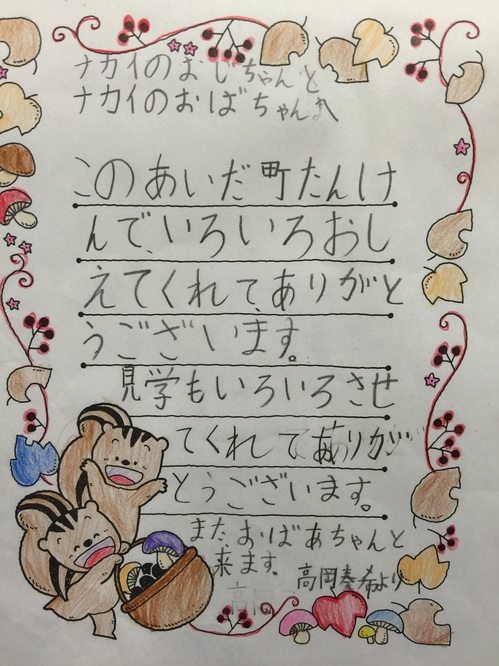 ナカイのおじちゃんと
ナカイのおばちゃんへ
このあいだ町たんけ
んで、いろいろおし
えてくれて、ありがと
うございます。
見学もいろいろさせ
てくれてありが
とうございます。
また、おばあちゃんと
来ます。
高岡奏希より